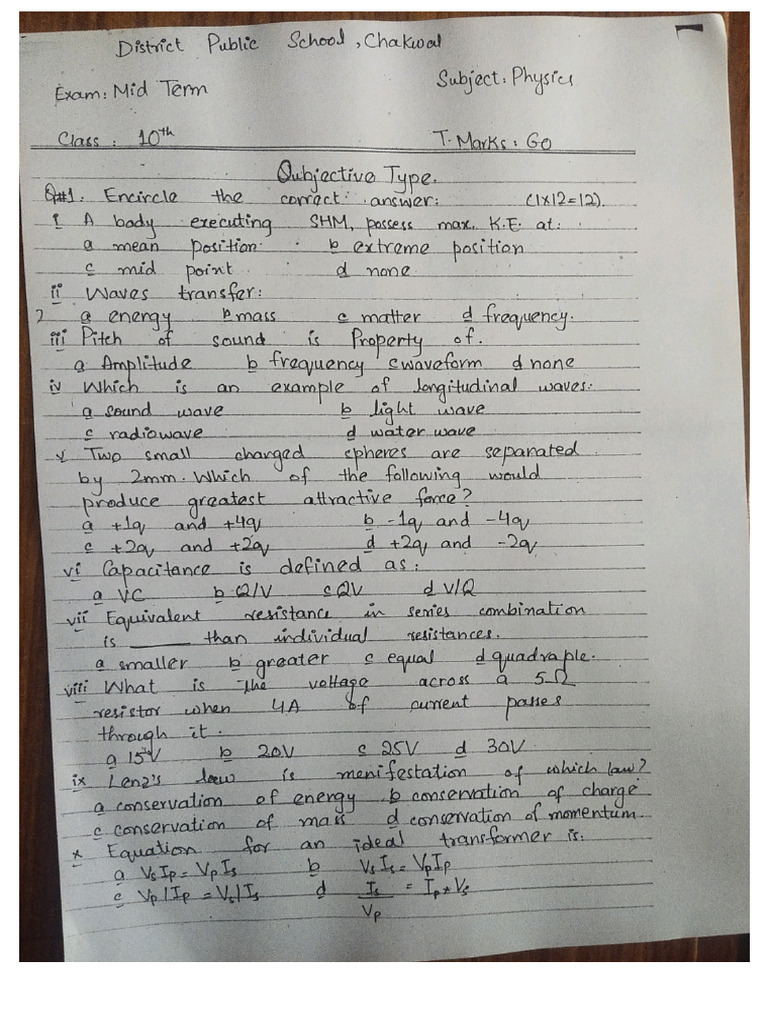 District Public School, Chakwal
Exam: Mid Term Subject: Physics
Class: 10th T. Marks: 60
Oubjective Type.
Q#1. Encircle the correct answer: (1x12=12).
i A body executing SHM, possess max. K.E at:
a mean position b extreme position
c mid point d none
ii Waves transfer:
a energy b mass c matter d frequency.
iii Pitch of sound is Property of.
a Amplitude b frequency c waveform d none
iv Which is an example of longitudinal waves:
a sound wave b light wave
c radiowave d water wave
v Two small charged spheres are separated
by 2mm. Which of the following would
produce greatest attractive force?
a +1q and +4q b -1q and -4q
c +2q and +2q d +2q and -2q
vi Capacitance is defined as:
a VC b Q/V c QV d V/Q
vii Equivalent resistance in series combination
is ______ than individual resistances.
a smaller b greater c equal d quadraple.
viii What is the voltage across a 5Ω
resistor when 4A of current passes
through it.
a 15V b 20V c 25V d 30V
ix Lenz's law is menifestation of which law?
a conservation of energy b conservation of charge
c conservation of mass d conservation of momentum.
x Equation for an ideal transformer is:
a VsIp = VpIs b VsIs = VpIp
c Vp/Ip = Vs/Is d Is/Vp = Ip*Vs